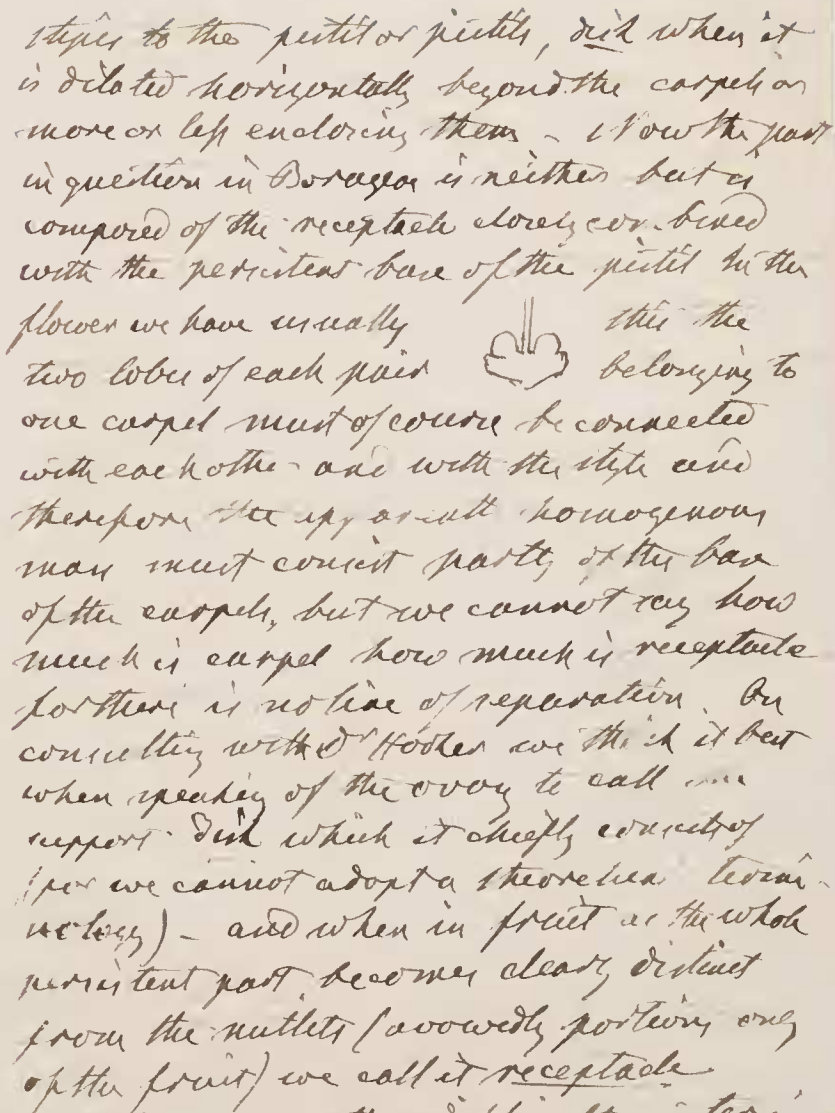 stipes to the pistil or pistils, disk when it
is dilated horizontally beyond the carpels or
more or less enclosing them – Now the part
in question in Borageae is neither but is
composed of the receptacle closely combined
with the persistent base of the pistil In the
flower we have usually this the
two lobes of each pair belonging to
one carpel must of course be connected
with each other and with the style and
therefore the apparent homogenous
mass must consist partly of the base
of the carpels, but we cannot say how
much is carpel how much is receptacle
for there is no line of separation. On
consulting with Dr Hooker we think it best
when speaking of the ovary to call
support disk which it chiefly consists of
(for we cannot adopt a theoretical termi-
nology) – and when in fruit as the whole
persistent part becomes clearly distinct
from the nutlets (avowedly portions only
of the fruit) we call it receptacle